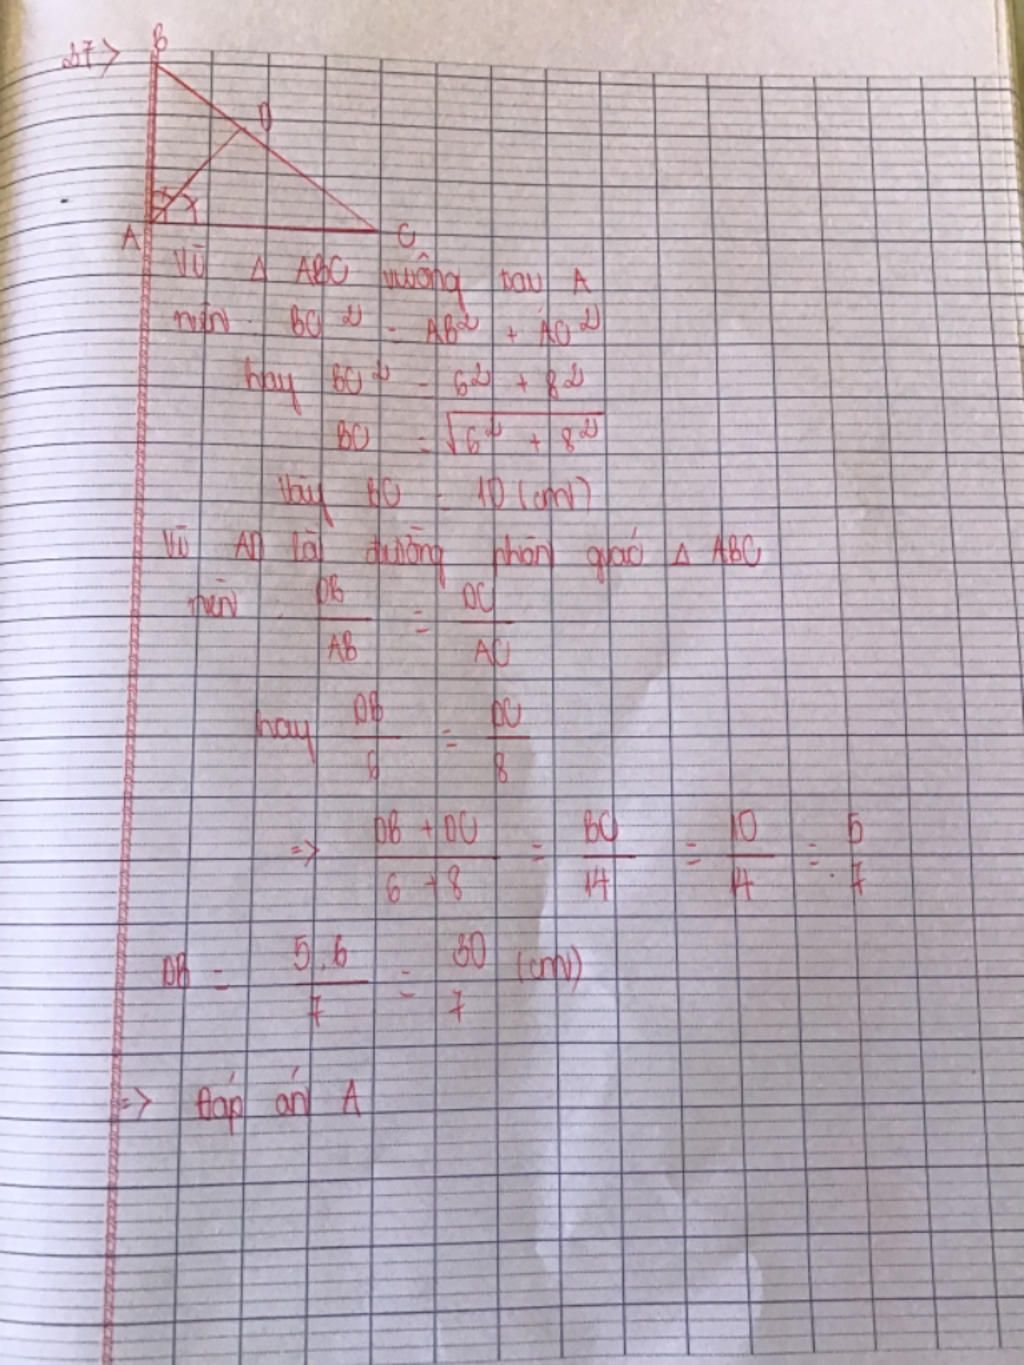 27>
B
D
A
C
Vì Δ ABC vuông tại A
nên BC² = AB² + AC²
hay BC² = 6² + 8²
BC = √6² + 8²
Vậy BC = 10 (cm)
Vì AD là đường phân giác Δ ABC
nên DB/AB = DC/AC
hay DB/6 = DC/8
=> DB + DC/6 + 8 = BC/14 = 10/14 = 5/7
DB = 5.6/7 = 30/7 (cm)
=> Đáp án A